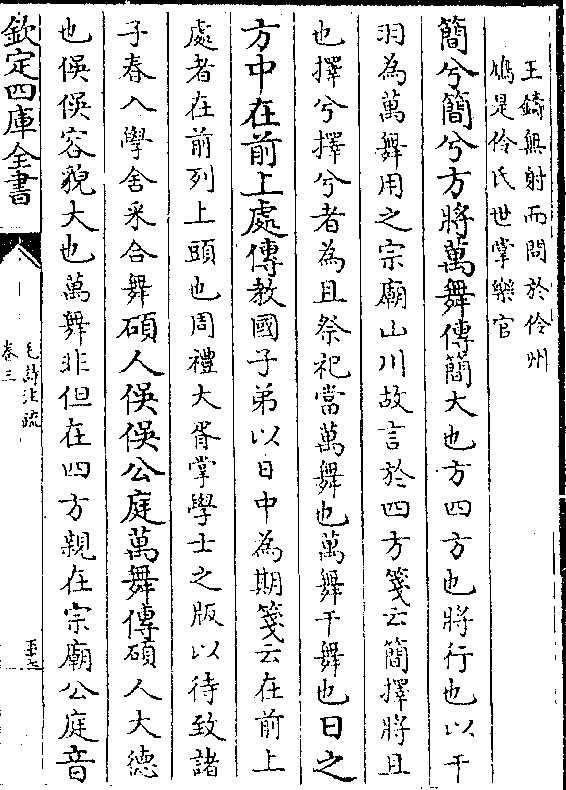 王鑄無射而問於伶州
鳩是伶氏世掌樂官
簡兮簡兮方將萬舞傳簡大也方四方也將行也以干
羽為萬舞用之宗廟山川故言於四方箋云簡擇將且
也擇兮擇兮者為且祭祀當萬舞也萬舞干舞也日之
方中在前上處傳教國子弟以日中為期箋云在前上
處者在前列上頭也周禮大胥掌學士之版以待致諸
子春入學舍采合舞碩人俁俁公庭萬舞傳碩人大德
也俁俁容貌大也萬舞非但在四方親在宗廟公庭音
欽定四庫全書
毛詩注疏
卷三